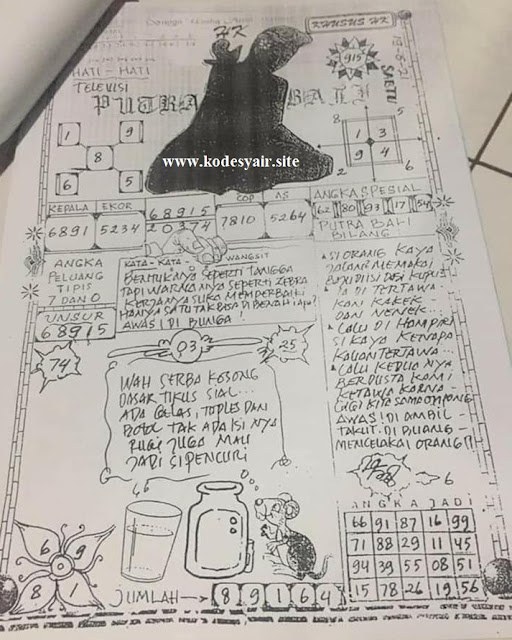 HK
KHUSUS HK
915
SABTU
HATI - HATI
TELEVISI
PUTRA BALI
1 9
8
6 5
1 3
9 4
8
5
2
6
www.kodesyair.site
KEPALA EKOR
6891 5234
68915
20374
COP AS
7810 5264
ANGKA SPESIAL
62 80 93 17 54
PUTRA BALI
BILANG
ANGKA
PELUANG
TIPIS
7 DAN 0
UNSUR
68915
KATA - KATA - WANGSIT
BENTUKANYA SEPERTI TANGGA
TAPI WARNANYA SEPERTI ZEBRA
KERJANYA SUKA MEMPERBAIKI
HANYA SATU TAK BISA DI BENAHI APA?
AWAS! DI BUNGA
SI ORANG KAYA
JALAN MEMAKAI
DI TERTAWA
KAN KAKEK
DAN NENEK
LALU DI HAMPIRI
SI KAYA KENAPA
KALIAN TERTAWA
LALU KEDUA NYA
BERDUSTA KAMI
KETAWA KARNA
GIGI KITA SAMA OMPONG
AWAS! DI AMBIL
TAKUT. DI BUANG
MENCELAKAI ORANG
74
03
25
WAH SERBA KOSONG
DASAR TIKUS SIAL...
ADA GELAS, TOPLES DAN
BOTOL TAK ADA ISI NYA
RUGI JUGA MAU
JADI SI PENCURI
6
ANGKA JADI
66 91 87 16 99
71 88 29 11 45
94 39 55 08 51
15 78 26 19 56
6 9
8 1
JUMLAH
8 9 1 6 4